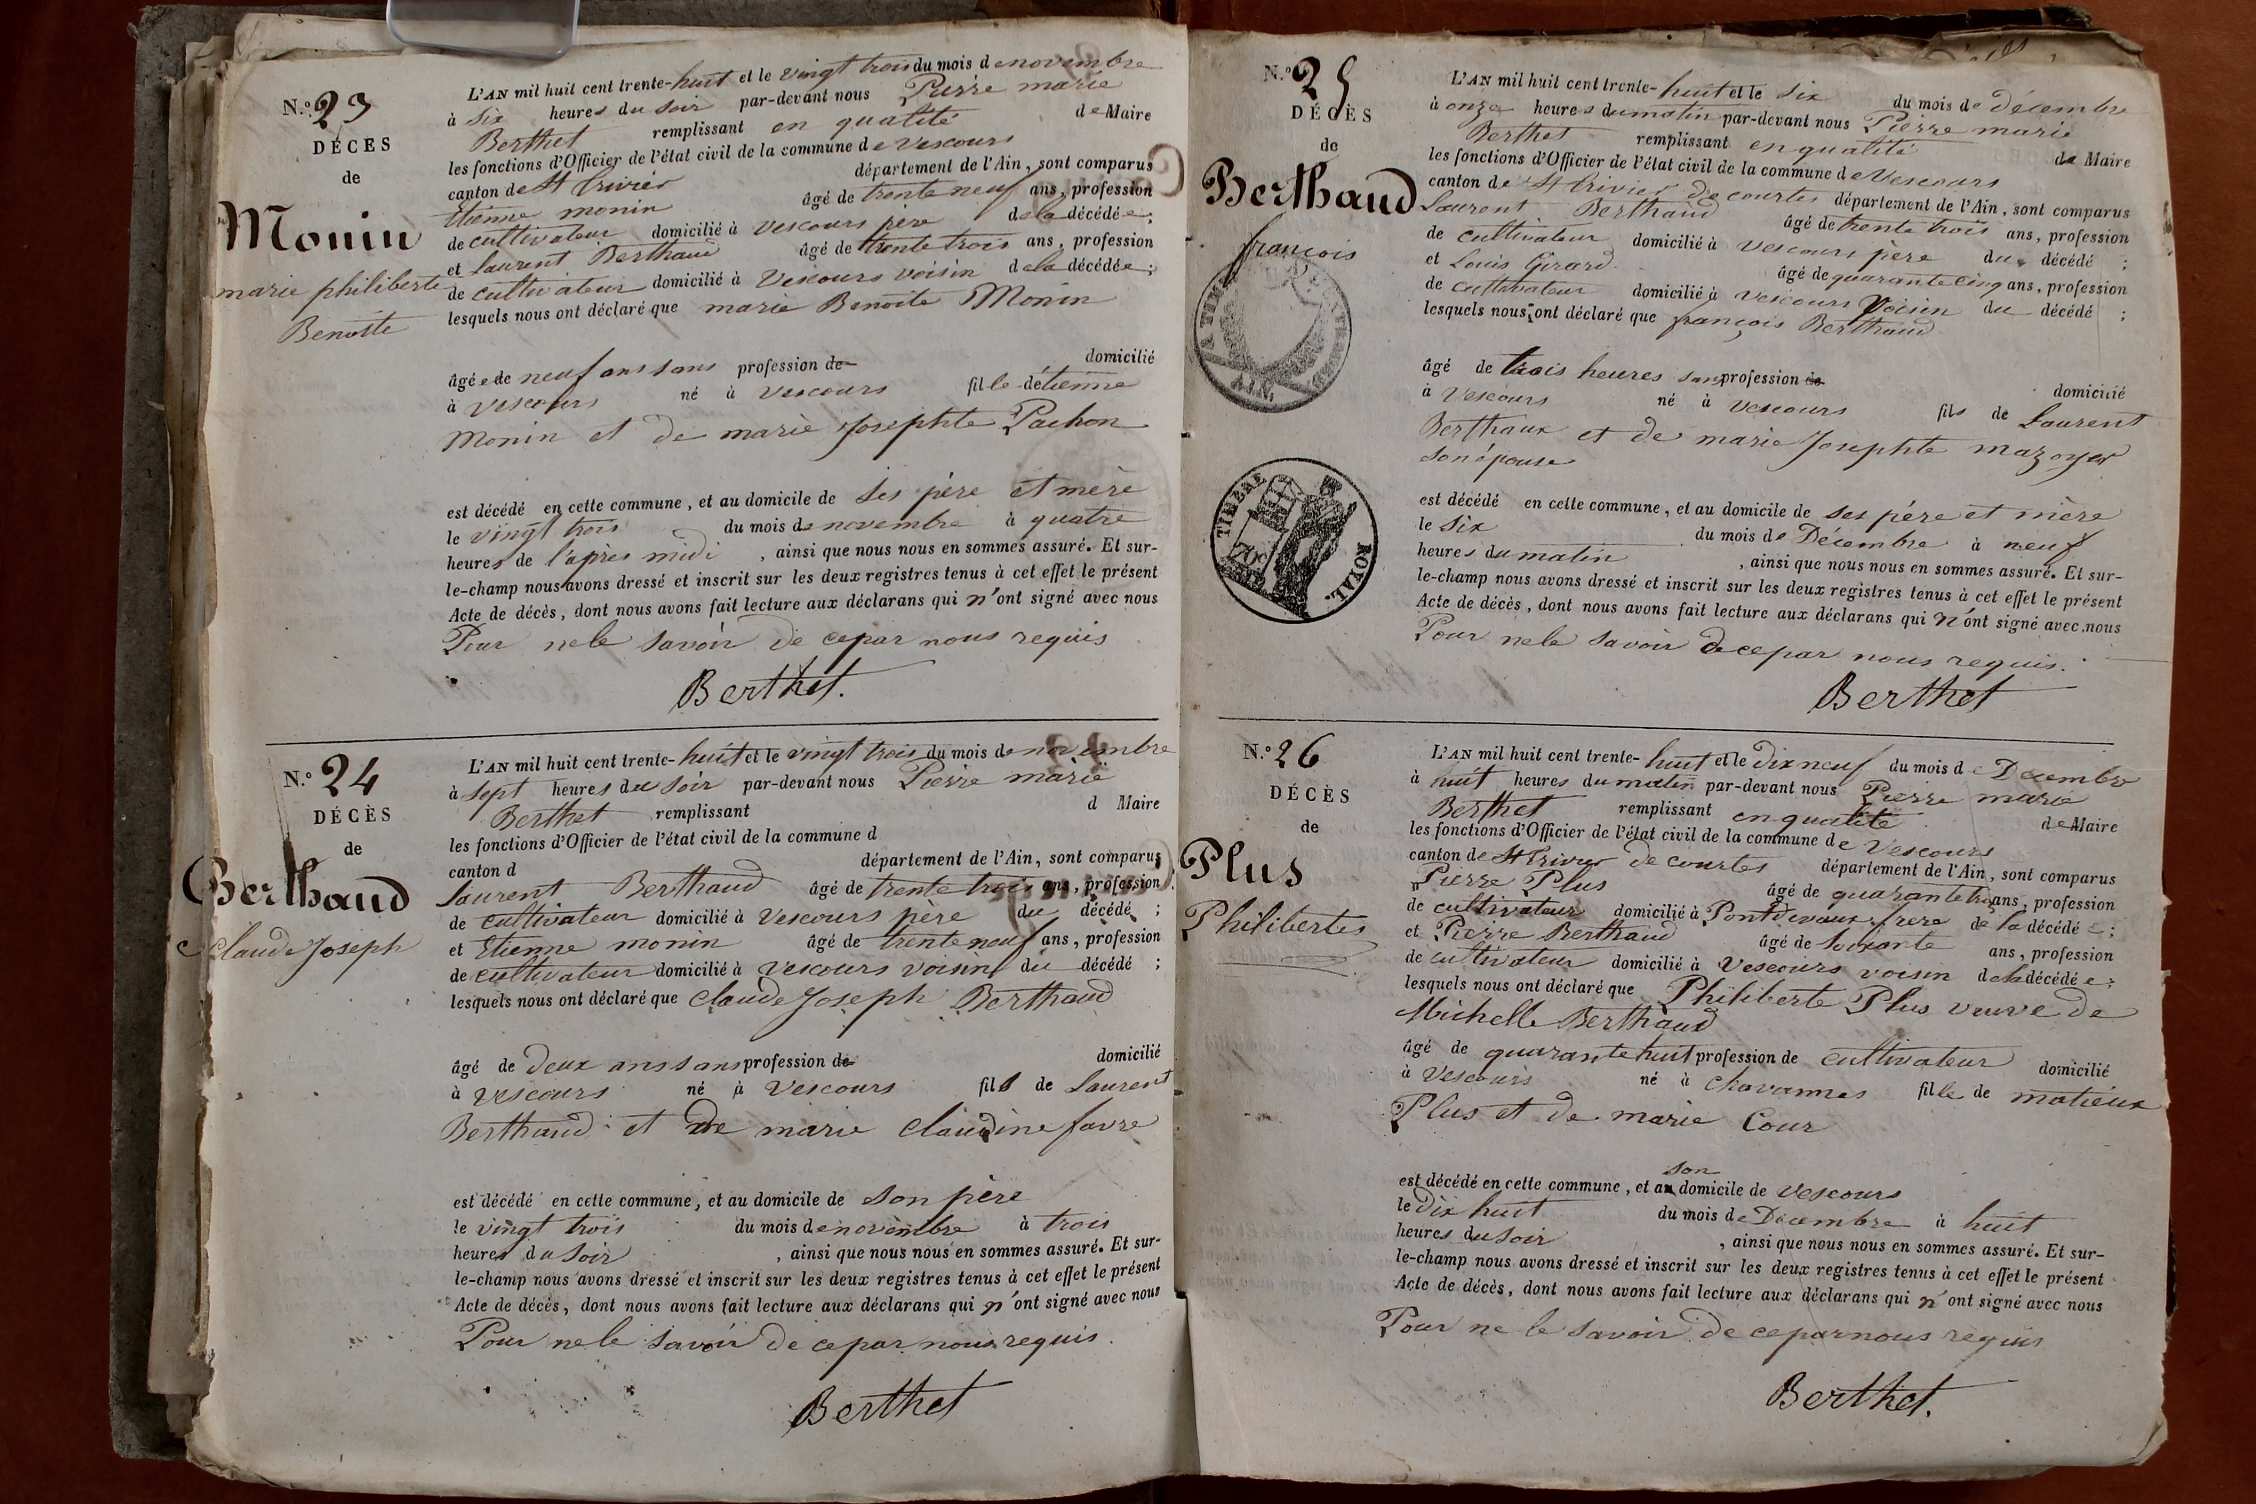 N.º 23
DÉCÈS
de
Monin
marie philiberte
Benoite
L'AN mil huit cent trente-huit et le vingt trois du mois de novembre
à six heures du soir par-devant nous Pierre marie
Berthet remplissant en qualité de Maire
les fonctions d'Officier de l'état civil de la commune de vescours
canton de St trivier département de l'Ain, sont comparus
Etienne monin âgé de trente neuf ans, profession
de cultivateur domicilié à vescours père de la décédée ;
et Laurent Berthaud âgé de trente trois ans, profession
de cultivateur domicilié à Vescours voisin de la décédée ;
lesquels nous ont déclaré que marie Benoite Monin
âgée de neuf ans sans profession de domicilié
à vescours né à vescours fille détienne
Monin et de marie Josephte Pachon
est décédé en cette commune, et au domicile de ses père et mère
le vingt trois du mois de novembre à quatre
heures de l'après midi, ainsi que nous nous en sommes assuré. Et sur-
le-champ nous avons dressé et inscrit sur les deux registres tenus à cet effet le présent
Acte de décès, dont nous avons fait lecture aux déclarans qui n'ont signé avec nous
Pour nele savoir de cepar nous requis
Berthet.
N.º 24
DÉCÈS
de
Berthaud
Claude Joseph
L'AN mil huit cent trente-huit et le vingt trois du mois de novembre
à sept heures du soir par-devant nous Pierre marie
Berthet remplissant d Maire
les fonctions d'Officier de l'état civil de la commune d
canton d département de l'Ain, sont comparus
Laurent Berthaud âgé de trente trois ans, profession
de cultivateur domicilié à Vescours père du décédé ;
et Etienne monin âgé de trente neuf ans, profession
de cultivateur domicilié à vescours voisin du décédé ;
lesquels nous ont déclaré que claude Joseph Berthaud
âgé de deux ans sans profession de domicilié
à vescours né à Vescours fils de Laurent
Berthaud et de marie claudine favre
est décédé en cette commune, et au domicile de son père
le vingt trois du mois de novembre à trois
heures du soir, ainsi que nous nous en sommes assuré. Et sur-
le-champ nous avons dressé et inscrit sur les deux registres tenus à cet effet le présent
Acte de décès, dont nous avons fait lecture aux déclarans qui n'ont signé avec nous
Pour nele savoir de cepar nous requis.
Berthet
N.º 25
DÉCÈS
de
Berthaud
françois
TIMBRE
ROYAL.
L'AN mil huit cent trente-huit et le six du mois de décembre
à onze heures dumatin par-devant nous Pierre marie
Berthet remplissant en qualité de Maire
les fonctions d'Officier de l'état civil de la commune de Vescours
canton de St trivier de courtes département de l'Ain, sont comparus
Laurent Berthaud âgé de trente trois ans, profession
de cultivateur domicilié à Vescours père du décédé ;
et Louis Girard âgé de quarante cinq ans, profession
de cultivateur domicilié à vescours voisin du décédé ;
lesquels nous ont déclaré que françois Berthaud
âgé de trois heures sans profession de domicilié
à Vescours né à vescours fils de Laurent
Berthaux et de marie Josephte mazoyer
son épouse
est décédé en cette commune, et au domicile de ses père et mère
le six du mois de Décembre à neuf
heures du matin, ainsi que nous nous en sommes assuré. Et sur-
le-champ nous avons dressé et inscrit sur les deux registres tenus à cet effet le présent
Acte de décès, dont nous avons fait lecture aux déclarans qui n'ont signé avec nous
Pour nele savoir de cepar nous requis.
Berthet
N.º 26
DÉCÈS
de
Plus
Philiberte
L'AN mil huit cent trente-huit et le dix neuf du mois de Décembre
à huit heures du matin par-devant nous Pierre marie
Berthet remplissant en qualité de Maire
les fonctions d'Officier de l'état civil de la commune de Vescours
canton de St trivier de courtes département de l'Ain, sont comparus
Pierre Plus âgé de quarante trois ans, profession
de cultivateur domicilié à Pontdevaux frere de la décédée ;
et Pierre Berthaud âgé de soixante ans, profession
de cultivateur domicilié à Vescours voisin de la décédée ;
lesquels nous ont déclaré que Philiberte Plus veuve de
Michelle Berthaud
âgé de quarante huit profession de cultivateur domicilié
à Vescours né à chavannes fille de matieux
Plus et de marie Cour
est décédé en cette commune, et au son domicile de Vescours
le dix huit du mois de Décembre à huit
heures du soir, ainsi que nous nous en sommes assuré. Et sur-
le-champ nous avons dressé et inscrit sur les deux registres tenus à cet effet le présent
Acte de décès, dont nous avons fait lecture aux déclarans qui n'ont signé avec nous
Pour ne le savoir de ceparnous requis
Berthet.